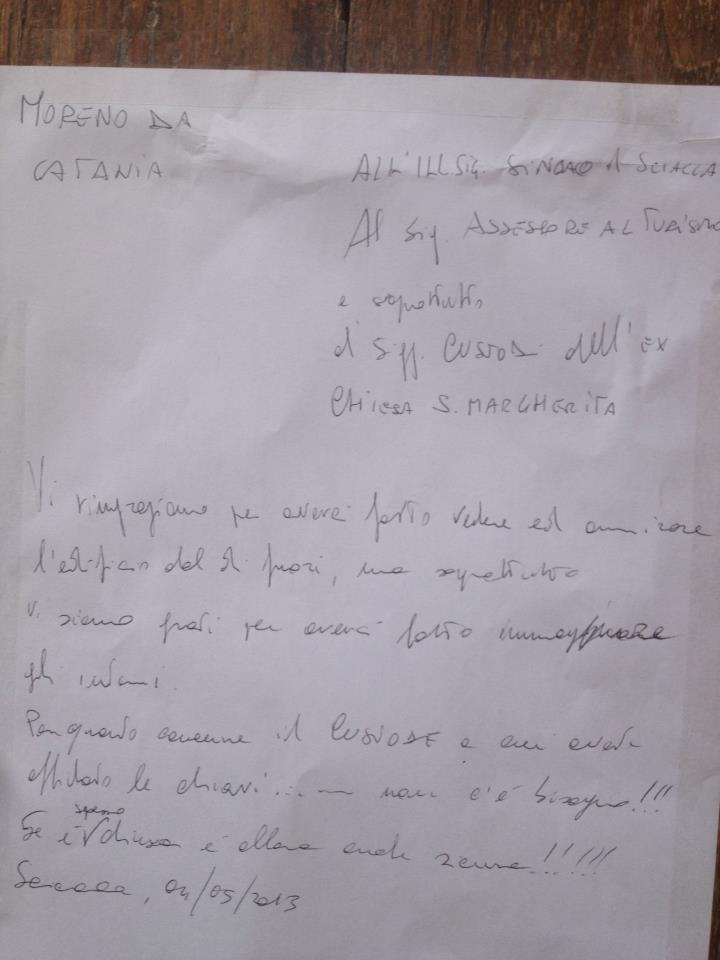 MORENO DA
CATANIA
ALL'ILL SIG. SINDACO di SCIACCA
Al Sig. ASSESSORE AL TURISMO
e soprattutto
ai Sigg. CUSTODI dell'EX
CHIESA S. MARGHERITA
Vi ringraziamo per averci fatto vedere ed ammirare
l'edificio dal di fuori, ma soprattutto
Vi siamo grati per averci fatto immaginare
gli interni.
Per quanto concerne il CUSTODE a cui avete
affidato le chiavi...... non c'è bisogno!!!
Se è spesso chiusa è allora anche !!!!!
Sciacca, 04/05/2013